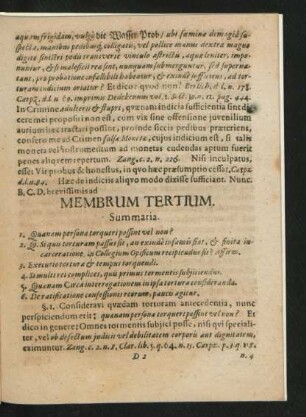 aquam frigidam, vulgò die Wasser Prob / ubi fœminæ demagia su-
spectæ, manibus pedibusq; colligatis, vel pollice manus dextræ magno
digito sinistri pedis transversè vinculo astrictū, aquæ leniter, impo-
nuntur, & si maleficii rea sunt, nunquam submerguntur, sed superna-
tant, pro probatione infallibili habeatur, & exinde sufficiens, ad tor-
turam indicium oriatur? Et dicor quod non?
Carpz. d.l. n. 69. in primis
In Crimine adulterii & stupri, quænam indicia sufficientia sint di-
cere mei propositi non est, cum vix sine offensione juvenilium
aurium hæc tractari possint, proinde siccis pedibus præteriens,
confero me ad Crimen falsæ Monetæ, cujus indicium est, si talis
moneta vel instrumentum ad monetas cudendas aptum fuerit
penes aliquem repertum. Zang. c. 2. n. 226. Nisi inculpatus,
esset Vir probus & honestus, in quo hæc præsumptio cesset, Carpz.
d.l. n. 84. Hæc de indiciis aliquo modo dixisse sufficiat. Nunc.
B. C. D. brevissimis ad
MEMBRUM TERTIUM.
Summaria.
1. Quænam persona torqueri possint vel non?
2. Qu. Si quis torturam passus sit, an exinde infamis fiat, & finita in-
carceratione, in Collegium Opificum recipiendus sit? Affirm.
3. Executio torturæ & tempus torquendi.
4. Si multi rei complices, quis primus tormentis subjiciendus.
5. Quænam Circa interrogationem in ipsa tortura consideranda.
6. De ratificatione confessionis reorum, paucis agitur.
§. 1. Consideravi quædam torturam antecedentia, nunc
perspiciendum erit: quænam persona torqueri possint vel non? Et
dico in genere: Omnes tormentis subjici posse, nisi qui speciali-
ter, vel ob defectum judicii vel debilitatem corporis aut dignitatem,
eximuntur. Zang. c. 1. n. 8. Clar. lib. 5. q. 64. n. 15. Carpz. p. 3. q. 118.
D 2
n. 4